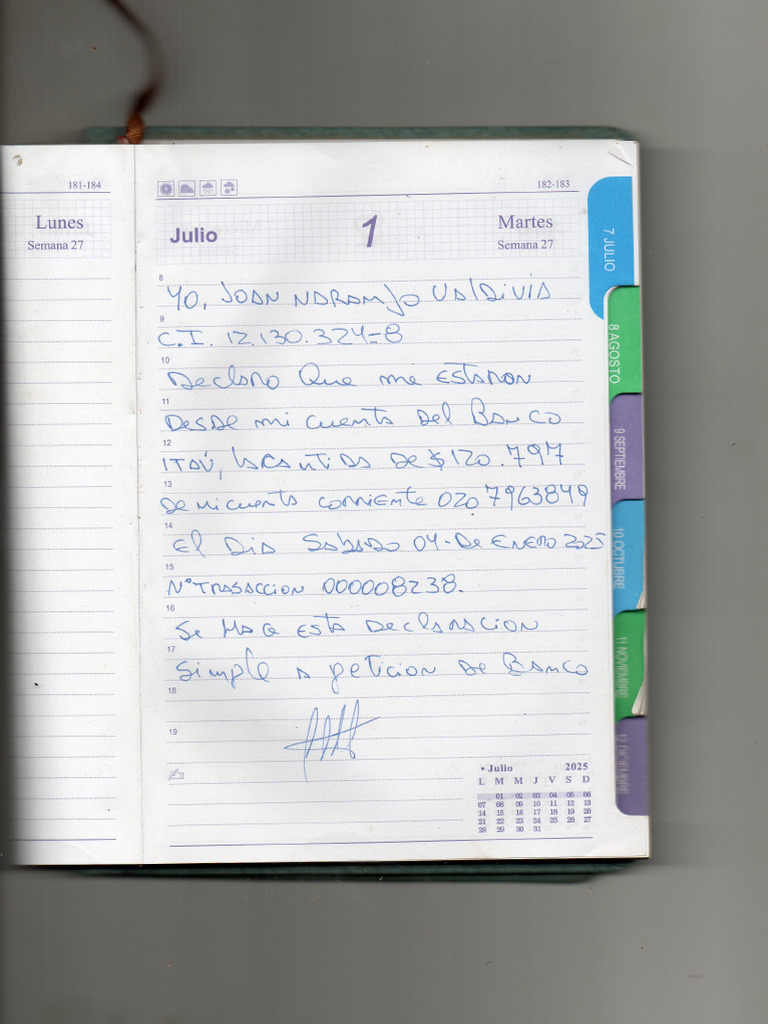 181-184
Lunes
Semana 27
182-183
Julio 1 Martes
Semana 27
8
Yo, Joan Naranjo Valdivia
9
C.I. 12.130.324-8
10
Declaro Que me estaron
11
Desde mi cuenta del Banco
12
ITAÚ, la cantidad de $120.797
13
De mi cuenta corriente 0207963849
14
El Dia Sabado 04-De Enero 2025
15
N° Trasaccion 000008238.
16
Se Hace esta Declaracion
17
Simple a peticion de Banco
18
19
• Julio 2025
L M M J V S D
01 02 03 04 05 06
07 08 09 10 11 12 13
14 15 16 17 18 19 20
21 22 23 24 25 26 27
28 29 30 31
7 JULIO
8 AGOSTO
9 SEPTIEMBRE
10 OCTUBRE
11 NOVIEMBRE
12 DICIEMBRE